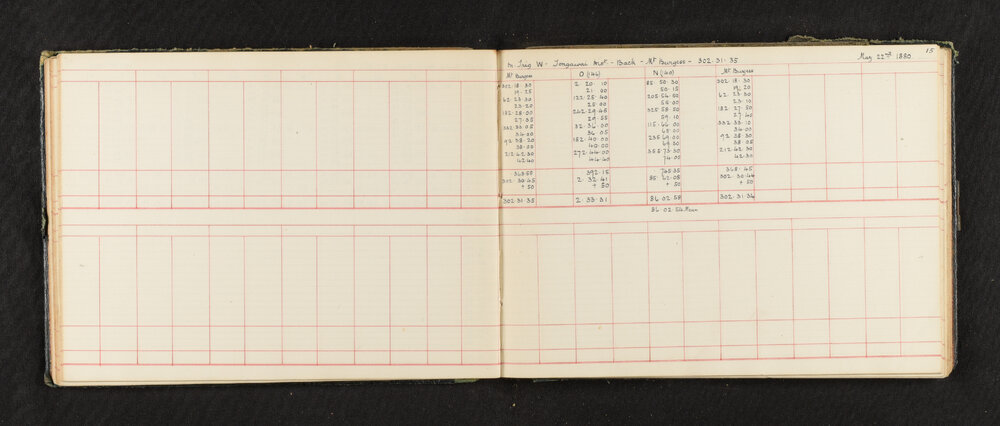 15
May 22nd 1880
In Trig W - Tongawai - Back - Mt Burgess - 302.31.35
Mt Burgess O (144) N (140) Mt Burgess
302.18.30 2.20.10 85.50.30 302.18.30
19.25 21.00 50.15 19.20
62.23.30 122.25.40 205.54.00 62.23.30
23.20 25.00 55.00 23.10
182.28.00 242.29.45 325.58.50 182.27.50
27.35 29.55 59.10 27.40
332.33.05 32.36.00 115.64.00 332.33.10
34.00 36.05 65.00 34.00
92.38.20 152.40.00 235.69.00 92.38.30
38.00 40.00 69.30 38.05
212.42.30 272.44.00 355.73.30 212.42.30
42.40 44.40 74.00 42.30
368.55 392.15 745.35 368.45
302.30.45 2.32.41 85.62.08 302.30.44
+50 +50 +50 +50
302.31.35 2.33.31 86.02.58 302.31.34
86.02 Mean